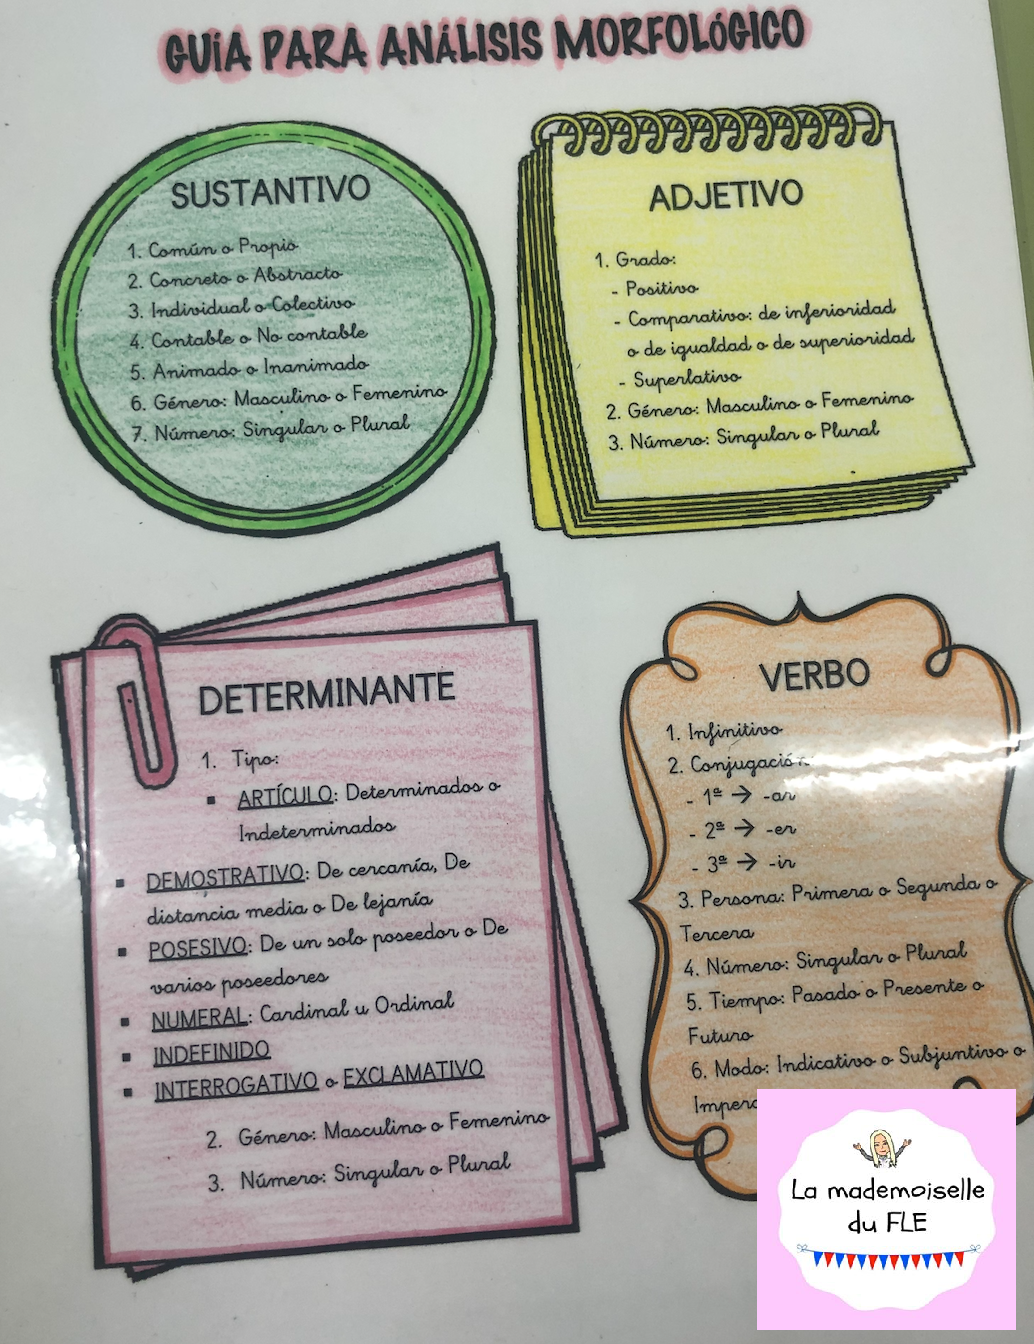 GUÍA PARA ANÁLISIS MORFOLÓGICO
SUSTANTIVO
1. Común o Propio
2. Concreto o Abstracto
3. Individual o Colectivo
4. Contable o No contable
5. Animado o Inanimado
6. Género: Masculino o Femenino
7. Número: Singular o Plural
ADJETIVO
1. Grado:
- Positivo
- Comparativo: de inferioridad
o de igualdad o de superioridad
- Superlativo
2. Género: Masculino o Femenino
3. Número: Singular o Plural
DETERMINANTE
1. Tipo:
▪ ARTÍCULO: Determinados o
Indeterminados
▪ DEMOSTRATIVO: De cercanía, De
distancia media o De lejanía
▪ POSESIVO: De un solo poseedor o De
varios poseedores
▪ NUMERAL: Cardinal u Ordinal
▪ INDEFINIDO
▪ INTERROGATIVO o EXCLAMATIVO
2. Género: Masculino o Femenino
3. Número: Singular o Plural
VERBO
1. Infinitivo
2. Conjugación
- 1ª → -ar
- 2ª → -er
- 3ª → -ir
3. Persona: Primera o Segunda o
Tercera
4. Número: Singular o Plural
5. Tiempo: Pasado o Presente o
Futuro
6. Modo: Indicativo o Subjuntivo o
La mademoiselle
du FLE